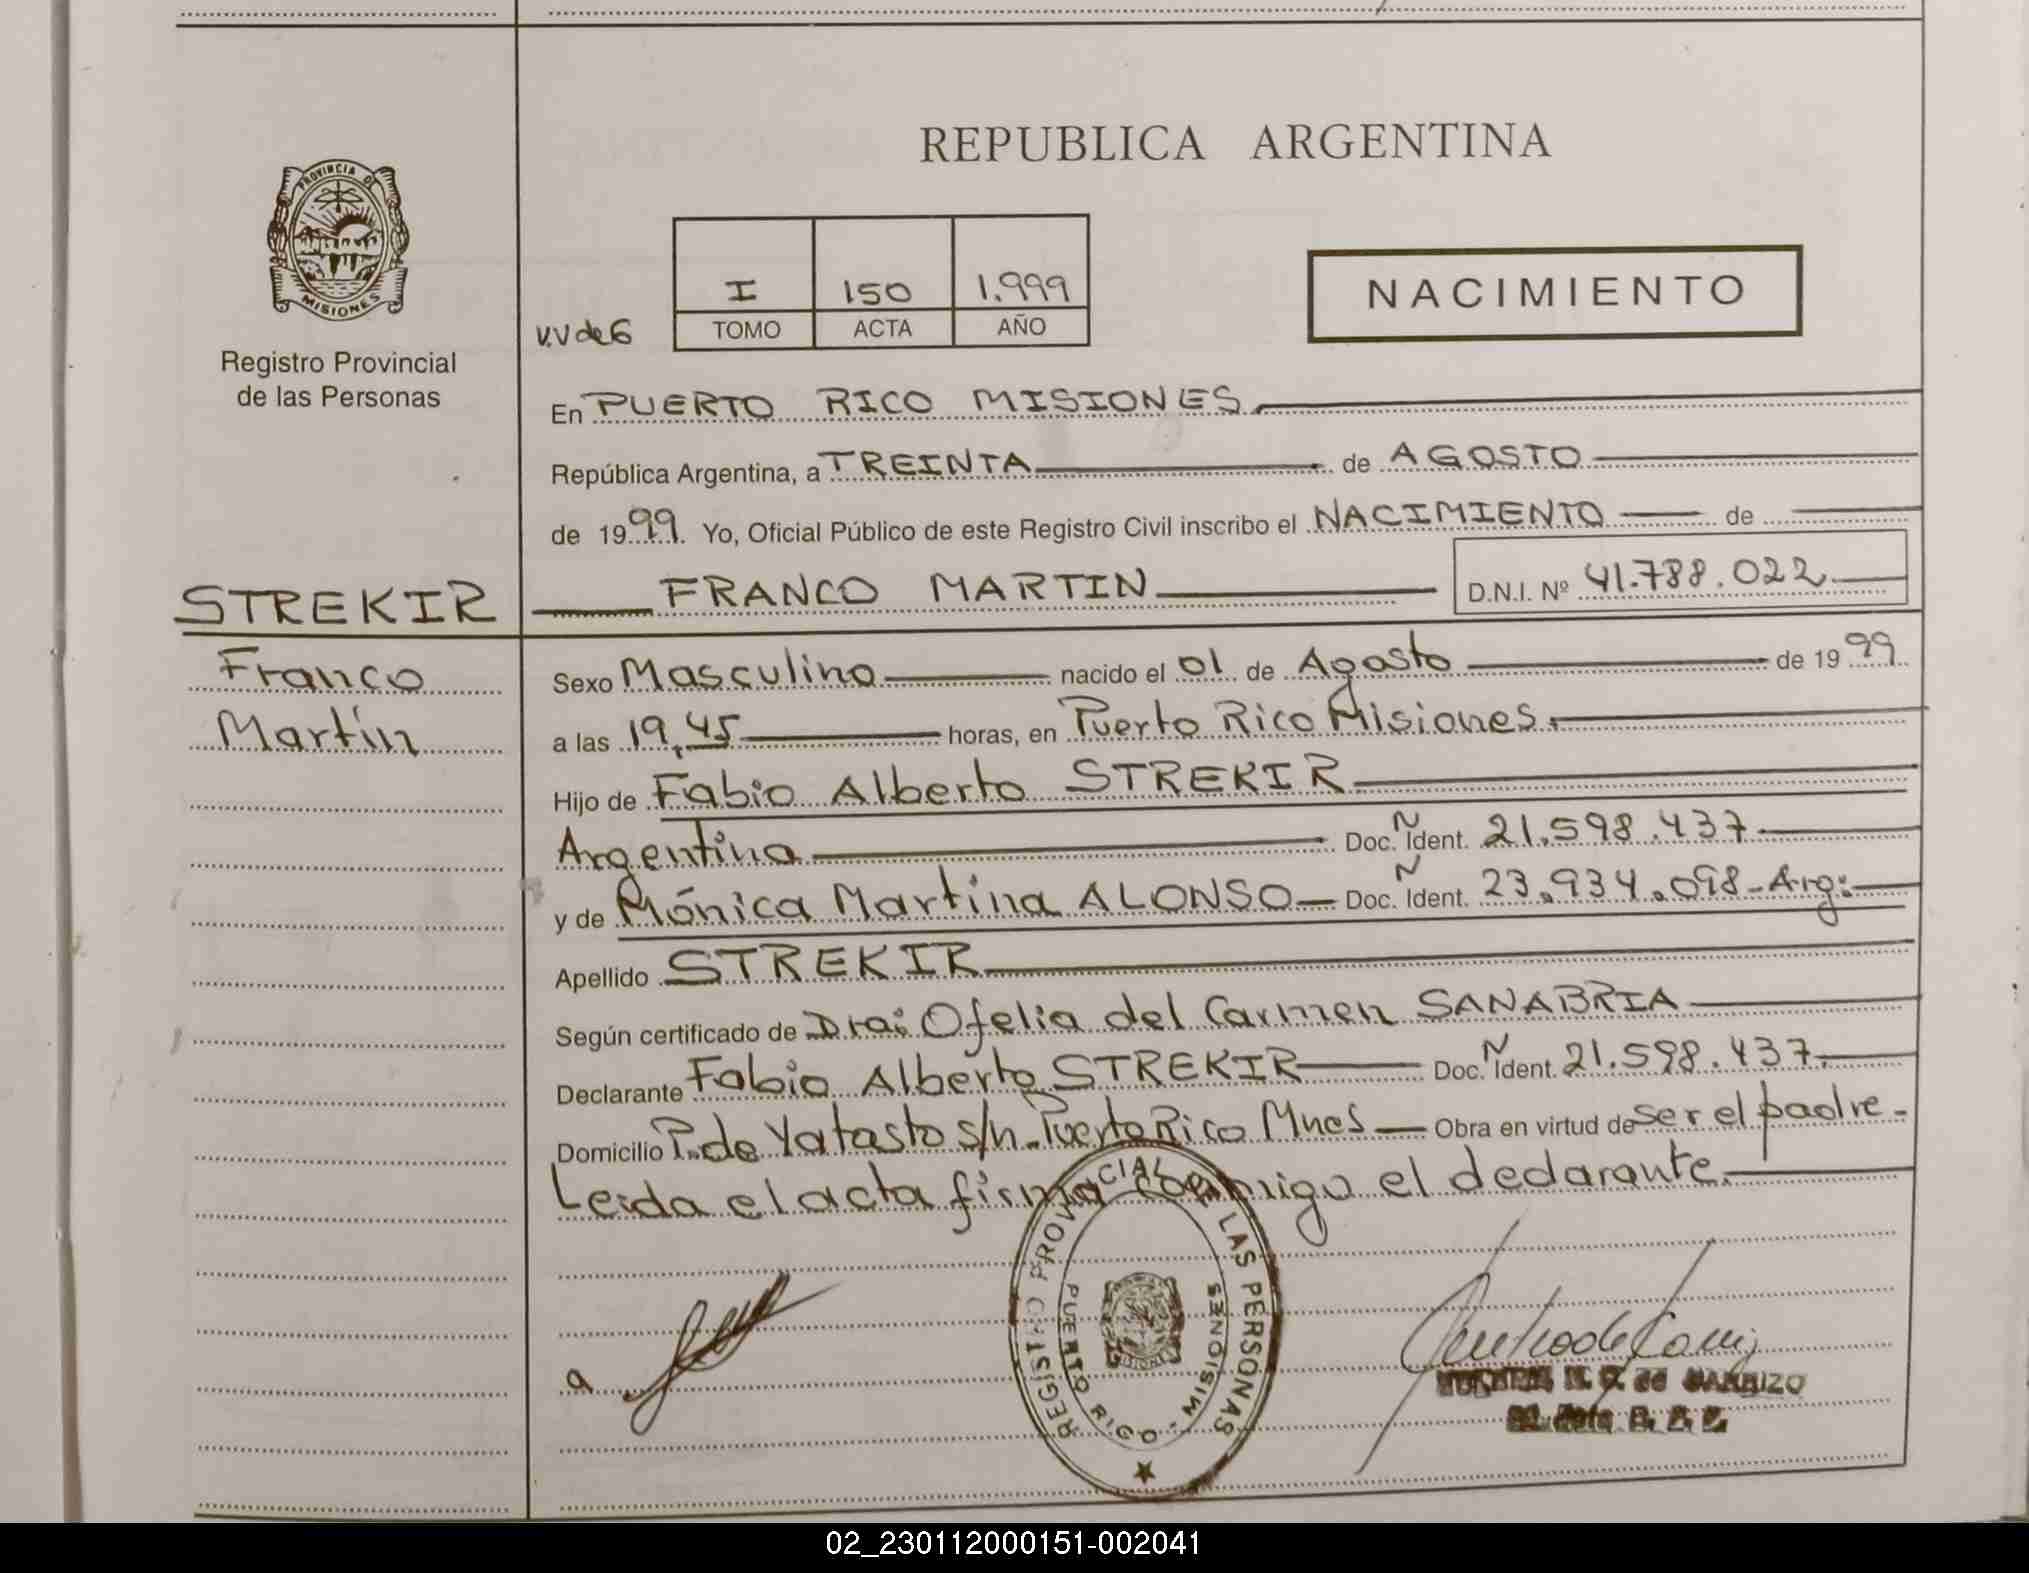 REPUBLICA ARGENTINA
PROVINCIA DE
MISIONES
Registro Provincial
de las Personas
I 150 1.999
V.V de 6 TOMO ACTA AÑO
NACIMIENTO
En PUERTO RICO MISIONES
República Argentina, a TREINTA de AGOSTO
de 1999. Yo, Oficial Público de este Registro Civil inscribo el NACIMIENTO de
STREKIR FRANCO MARTIN D.N.I. Nº 41.788.022
Franco
Martín
Sexo Masculino nacido el 01 de Agosto de 1999
a las 19,45 horas, en Puerto Rico Misiones.
Hijo de Fabio Alberto STREKIR
Argentina Doc. N Ident. 21.598.437
y de Mónica Martina ALONSO Doc. N Ident. 23.934.098-Arg:
Apellido STREKIR
Según certificado de Dra: Ofelia del Carmen SANABRIA
Declarante Fabio Alberto STREKIR Doc. N Ident. 21.598.437.
Domicilio P. de Yatasto s/n. Puerto Rico Mnes Obra en virtud de ser el padre.
Leida el acta firma conmigo el declarante.
REGISTRO PROVINCIAL DE LAS PERSONAS
PUERTO RICO - MISIONES
MISIONES
a
de
02_230112000151-002041